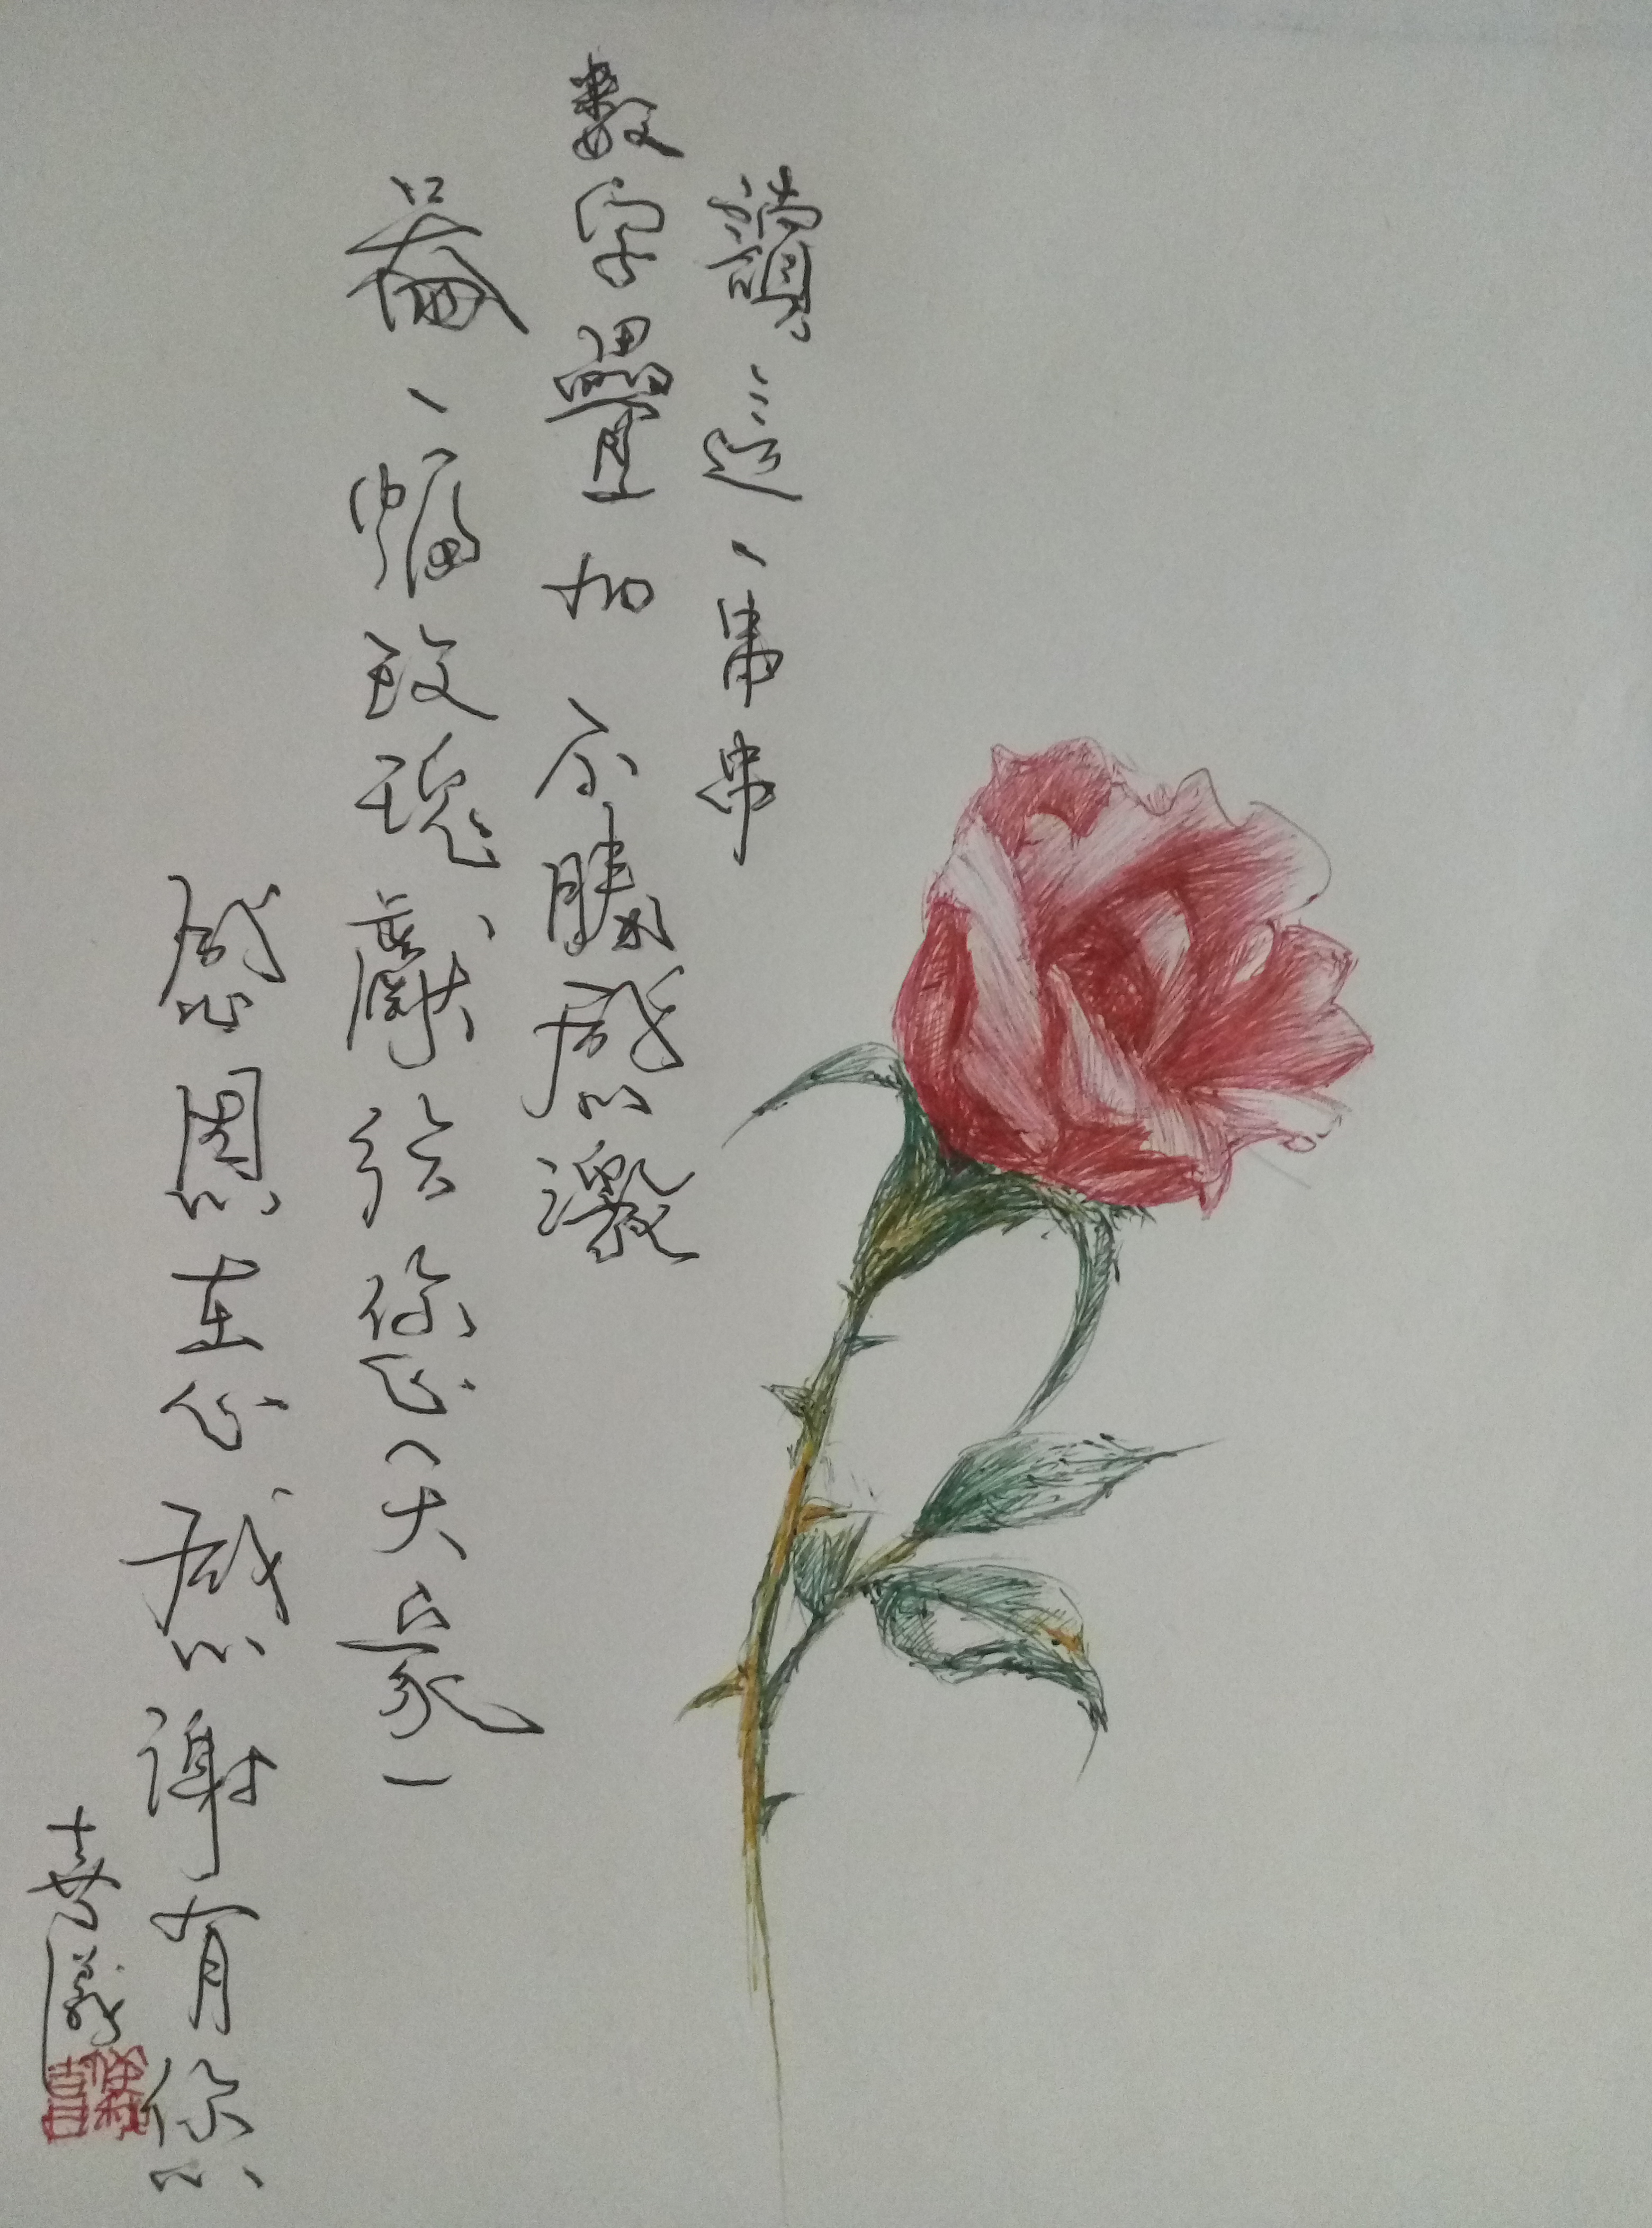 讀這一串串
數字疊加不勝感激
僅一幅玫瑰獻給您(大家)
感恩在心感謝有您